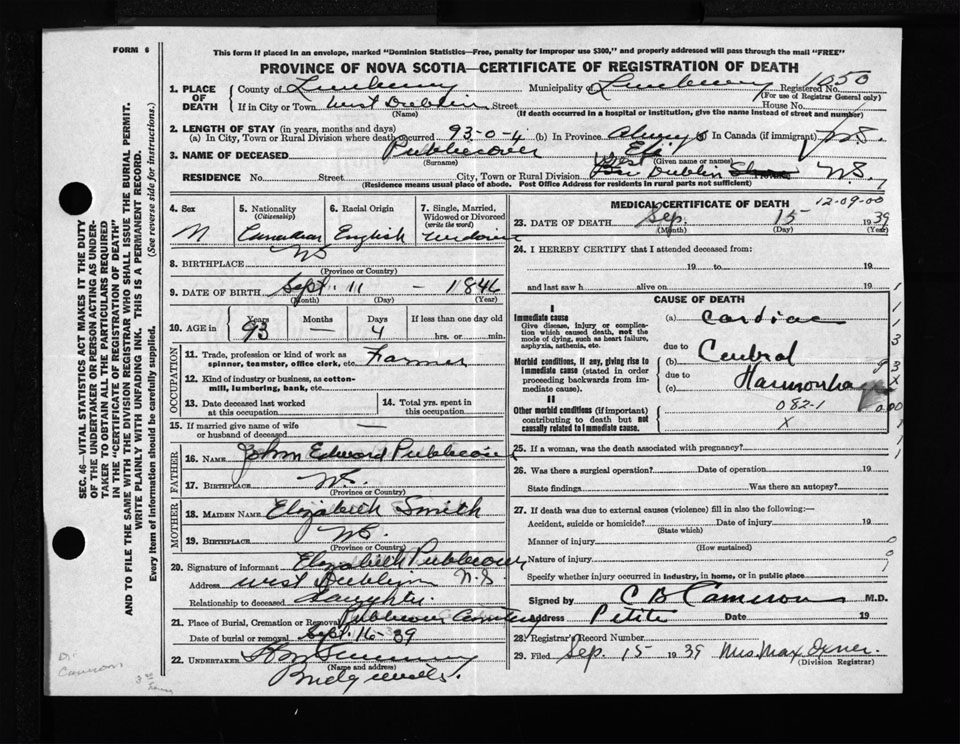 FORM 6
This form if placed in an envelope, marked "Dominion Statistics—Free, penalty for improper use $300," and properly addressed will pass through the mail "FREE"
PROVINCE OF NOVA SCOTIA—CERTIFICATE OF REGISTRATION OF DEATH
SEC. 46—VITAL STATISTICS ACT MAKES IT THE DUTY
OF THE UNDERTAKER OR PERSON ACTING AS UNDER-
TAKER TO OBTAIN ALL THE PARTICULARS REQUIRED
IN THE "CERTIFICATE OF REGISTRATION OF DEATH"
AND TO FILE THE SAME WITH THE DIVISION REGISTRAR WHO SHALL ISSUE THE BURIAL PERMIT.
WRITE PLAINLY WITH UNFADING INK. THIS IS A PERMANENT RECORD.
Every item of information should be carefully supplied. (See reverse side for instructions.)
1. PLACE OF DEATH County of Lunenburg Municipality of Lunenburg Registered No. 1050
(For use of Registrar General only)
If in City or Town West Dublin Street House No.
(Name) (If death occurred in a hospital or institution, give the name instead of street and number)
2. LENGTH OF STAY (in years, months and days)
(a) In City, Town or Rural Division where death occurred 93-0-4 (b) In Province Always In Canada (if immigrant) N.S.
3. NAME OF DECEASED Publicover Eli
(Surname) (Given name or names)
RESIDENCE No. Street City, Town or Rural Division West Dublin N.S.
(Residence means usual place of abode. Post Office Address for residents in rural parts not sufficient)
4. Sex M
5. Nationality (Citizenship) Canadian
6. Racial Origin English
7. Single, Married, Widowed or Divorced (write the word)
8. BIRTHPLACE NS
(Province or Country)
9. DATE OF BIRTH Sept. 11 - 1846
(Month) (Day) (Year)
10. AGE in Years 93 Months — Days 4 If less than one day old
hrs. or min.
OCCUPATION
11. Trade, profession or kind of work as spinner, teamster, office clerk, etc. Farmer
12. Kind of industry or business, as cotton-mill, lumbering, bank, etc.
13. Date deceased last worked at this occupation
14. Total yrs. spent in this occupation
15. If married give name of wife or husband of deceased —
FATHER
16. NAME John Edward Publicover
17. BIRTHPLACE N.S.
(Province or Country)
MOTHER
18. MAIDEN NAME Elizabeth Smith
19. BIRTHPLACE N.S.
(Province or Country)
20. Signature of informant Elizabeth Publicover
Address West Dublin N.S
Relationship to deceased Daughter.
21. Place of Burial, Cremation or Removal Publicover Cemetery
Date of burial or removal Sept. 16-39
22. UNDERTAKER
(Name and address)
MEDICAL CERTIFICATE OF DEATH 12-09-00
23. DATE OF DEATH Sep. 15 1939
(Month) (Day) (Year)
24. I HEREBY CERTIFY that I attended deceased from:
19 to 19
and last saw h alive on 19
CAUSE OF DEATH
I
Immediate cause
Give disease, injury or complication which caused death, not the mode of dying, such as heart failure, asphyxia, asthenia, etc.
(a) Cardiac
due to
Morbid conditions, if any, giving rise to immediate cause (stated in order proceeding backwards from immediate cause).
(b) Cerebral
due to
(c) Harmorrhage
II
Other morbid conditions (if important) contributing to death but not causally related to immediate cause.
082-1
X
25. If a woman, was the death associated with pregnancy?
26. Was there a surgical operation? Date of operation 19
State findings Was there an autopsy?
27. If death was due to external causes (violence) fill in also the following:—
Accident, suicide or homicide? Date of injury 19
(State which)
Manner of injury
(How sustained)
Nature of injury
Specify whether injury occurred in industry, in home, or in public place
Signed by C B Cameron M.D.
Address Petite Date 19
28. Registrar's Record Number
29. Filed Sep. 15 1939 Mrs. Max
(Division Registrar)
Dr.
Cameron